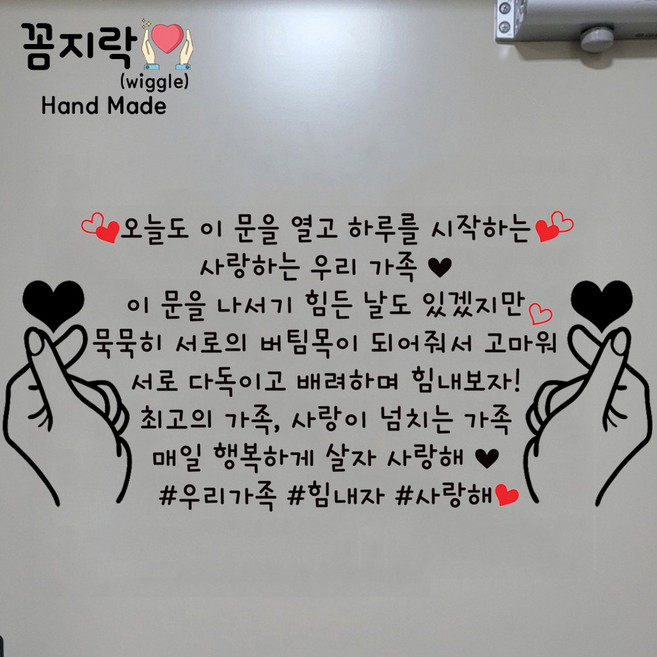 꼼지락
(wiggle)
Hand Made
오늘도 이 문을 열고 하루를 시작하는
사랑하는 우리 가족
이 문을 나서기 힘든 날도 있겠지만
묵묵히 서로의 버팀목이 되어줘서 고마워
서로 다독이고 배려하며 힘내보자!
최고의 가족, 사랑이 넘치는 가족
매일 행복하게 살자 사랑해
#우리가족 #힘내자 #사랑해